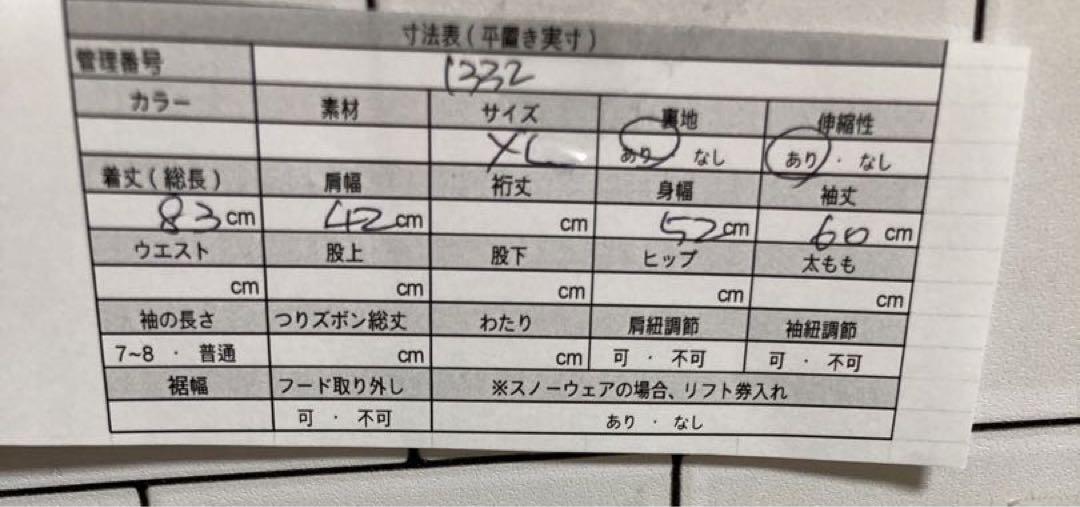 寸法表(平置き実寸)
管理番号 1332
カラー 素材 サイズ 裏地 伸縮性
XL あり・なし あり・なし
着丈(総長) 肩幅 裄丈 身幅 袖丈
83cm 42cm cm 52cm 60cm
ウエスト 股上 股下 ヒップ 太もも
cm cm cm cm cm
袖の長さ つりズボン総丈 わたり 肩紐調節 袖紐調節
7~8・普通 cm cm 可・不可 可・不可
裾幅 フード取り外し ※スノーウェアの場合、リフト券入れ
可・不可 あり・なし